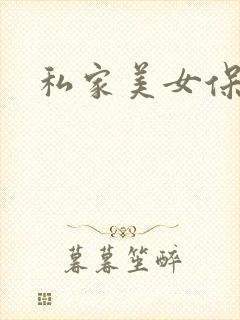 私家美女保
暮暮笙醉